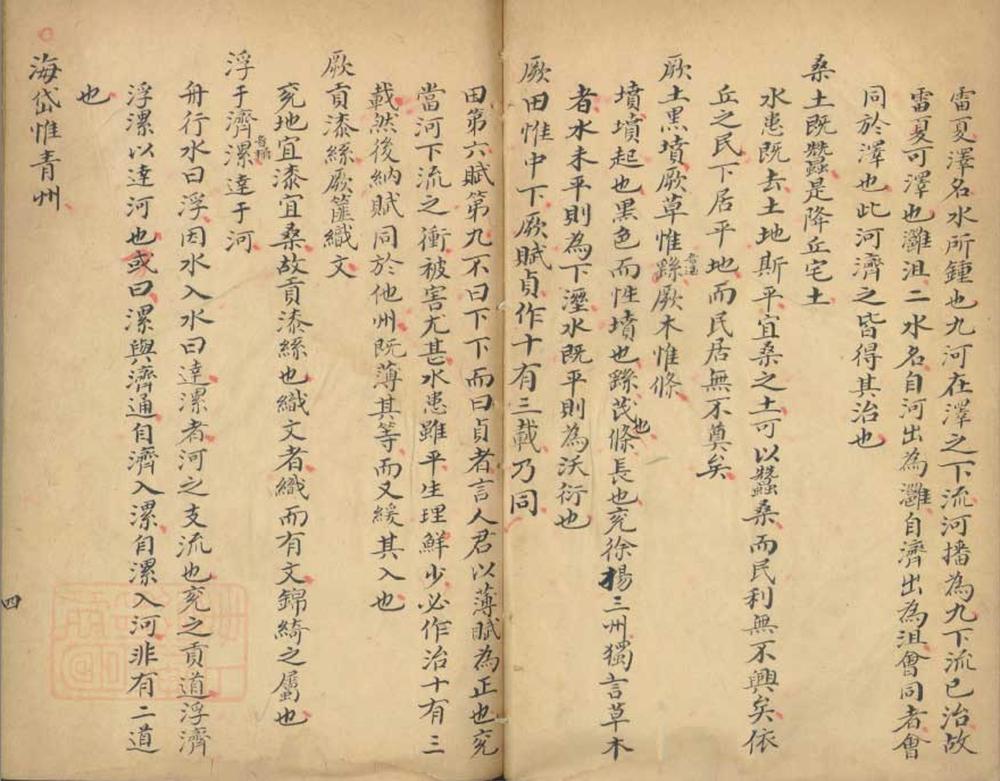 雷夏澤名水所鍾也九河在澤之下流河播為九下流已治故
雷夏可澤也灉沮二水名自河出為灉自濟出為沮會同者會
同於澤也此河濟之皆得其治也
桑土既蠶是降丘宅土
水患既去土地斯平宜桑之土可以蠶桑而民利無不興矣依
丘之民下居平地而民居無不奠矣
厥土黑墳厥草惟繇厥木惟條
墳墳起也黑色而性墳也繇茂也條長也兗徐揚三州獨言草木
者水未平則為下溼水既平則為沃衍也
厥田惟中下厥賦貞作十有三載乃同
田第六賦第九不曰下下而曰貞者言人君以薄賦為正也兗
當河下流之衝被害尤甚水患雖平生理鮮少必作治十有三
載然後納賦同於他州既薄其等而又緩其入也
厥貢漆絲厥篚織文
兗地宜漆宜桑故貢漆絲也織文者織而有文錦綺之屬也
浮于濟漯達于河
舟行水曰浮因水入水曰達漯者河之支流也兗之貢道浮濟
浮漯以達河也或曰漯與濟通自濟入漯自漯入河非有二道
也
海岱惟青州
四